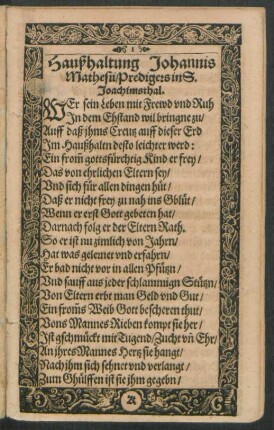 1
Haußhaltung Johannis
Mathesii/Predigers in S.
Joachimsthal.
WEr sein Leben mit Frewd vnd Ruh
In dem Ehstand wil bringne zu/
Auff daß jhms Creutz auff dieser Erd
Im Haußhalten desto leichter werd:
Ein from̃ gottsfürchtig Kind er frey/
Das von ehrlichen Eltern sey/
Vnd sich für allen dingen hüt/
Daß er nicht frey zu nah ins Gblüt/
Wenn er erst Gott gebeten hat/
Darnach folg er der Eltern Rath.
So er ist nu zimlich von Jahrn/
Hat was gelernet vnd erfahrn/
Er bad nicht vor in allen Pfützn/
Vnd sauff aus jeder schlammign Stützn/
Von Eltern erbt man Geld vnd Gut/
Ein from̃s Weib Gott bescheren thut/
Vons Mannes Rieben kompt sie her/
Ist gschmückt mit Tugend/Zucht vñ Ehr/
An jhres Mannes Hertz sie hangt/
Nach jhm sich sehnet vnd verlangt/
Zum Ghülffen ist sie jhm gegebn/
A